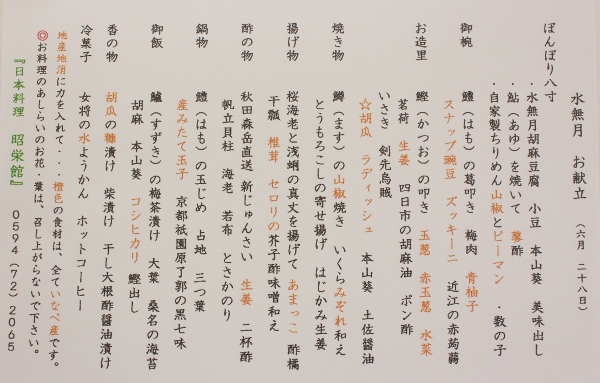 水無月 お献立 (六月 二十八日)
ぼんぼり八寸
・水無月胡麻豆腐 小豆 本山葵 美味出し
・鮎(あゆ)を焼いて 蓼酢
・自家製ちりめん山椒とピーマン ・数の子
御椀 鱧(はも)の葛叩き 梅肉 青柚子
スナップ豌豆 ズッキーニ 近江の赤蒟蒻
お造里 鰹(かつお)の叩き 玉葱 赤玉葱 水菜
茗荷 生姜 四日市の胡麻油 ポン酢
いさき 剣先烏賊
☆胡瓜 ラディッシュ 本山葵 土佐醤油
焼き物 鱒(ます)の山椒焼き いくらみぞれ和え
とうもろこしの寄せ揚げ はじかみ生姜
揚げ物 桜海老と浅蜊の真丈を揚げて あまっこ 酢橘
干瓢 椎茸 セロリの芥子酢味噌和え
酢の物 秋田森岳直送 新じゅんさい 生姜 二杯酢
帆立貝柱 海老 若布 とさかのり
鍋物 鱧(はも)の玉じめ 占地 三つ葉
産みたて玉子 京都祇園原了郭の黒七味
御飯 鱸(すずき)の梅茶漬け 大葉 桑名の海苔
胡麻 本山葵 コシヒカリ 鰹出し
香の物 胡瓜の糠漬け 柴漬け 干し大根酢醤油漬け
冷菓子 女将の水ようかん ホットコーヒー
地産地消に力を入れて・・・橙色の食材は、全ていなべ産です。
◎お料理のあしらいのお花・葉は、召し上がらないで下さい。
『日本料理 昭栄館』 0594(72)2065